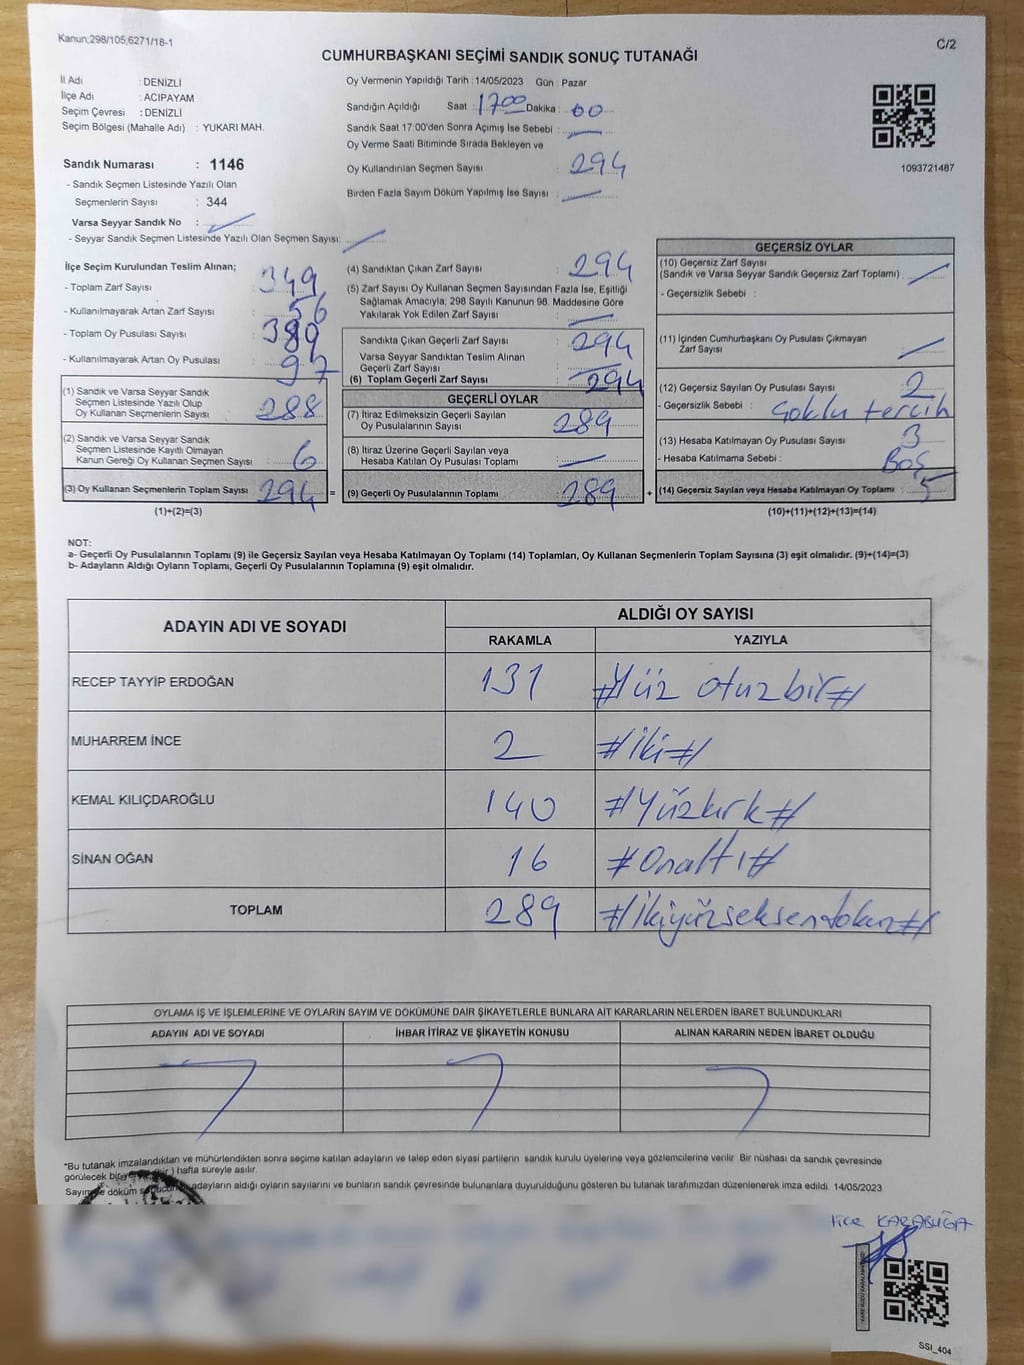 Kanun;298/105;6271/18-1
C/2
CUMHURBAŞKANI SEÇİMİ SANDIK SONUÇ TUTANAĞI
İl Adı : DENİZLİ
İlçe Adı : ACIPAYAM
Seçim Çevresi : DENİZLİ
Seçim Bölgesi (Mahalle Adı) : YUKARI MAH.
Sandık Numarası : 1146
- Sandık Seçmen Listesinde Yazılı Olan
Seçmenlerin Sayısı : 344
Varsa Seyyar Sandık No :
- Seyyar Sandık Seçmen Listesinde Yazılı Olan Seçmen Sayısı:
Oy Vermenin Yapıldığı Tarih : 14/05/2023 Gün : Pazar
Sandığın Açıldığı Saat : 1700 Dakika : 00
Sandık Saat 17:00'den Sonra Açımış İse Sebebi :
Oy Verme Saati Bitiminde Sırada Bekleyen ve
Oy Kullandırılan Seçmen Sayısı : 294
Birden Fazla Sayım Döküm Yapılmış İse Sayısı :
1093721487
İlçe Seçim Kurulundan Teslim Alınan;
- Toplam Zarf Sayısı : 349
- Kullanılmayarak Artan Zarf Sayısı : 56
- Toplam Oy Pusulası Sayısı : 389
- Kullanılmayarak Artan Oy Pusulası : 97
(1) Sandık ve Varsa Seyyar Sandık
Seçmen Listesinde Yazılı Olup
Oy Kullanan Seçmenlerin Sayısı : 288
(2) Sandık ve Varsa Seyyar Sandık
Seçmen Listesinde Kayıtlı Olmayan
Kanun Gereği Oy Kullanan Seçmen Sayısı : 6
(3) Oy Kullanan Seçmenlerin Toplam Sayısı : 294 =
(1)+(2)=(3)
(4) Sandıktan Çıkan Zarf Sayısı : 294
(5) Zarf Sayısı Oy Kullanan Seçmen Sayısından Fazla İse, Eşitliği
Sağlamak Amacıyla, 298 Sayılı Kanunun 98. Maddesine Göre
Yakılarak Yok Edilen Zarf Sayısı :
Sandıkta Çıkan Geçerli Zarf Sayısı : 294
Varsa Seyyar Sandıktan Teslim Alınan
Geçerli Zarf Sayısı :
(6) Toplam Geçerli Zarf Sayısı : 294
GEÇERLİ OYLAR
(7) İtiraz Edilmeksizin Geçerli Sayılan
Oy Pusulalarının Sayısı : 289
(8) İtiraz Üzerine Geçerli Sayılan veya
Hesaba Katılan Oy Pusulası Toplamı :
(9) Geçerli Oy Pusulalarının Toplamı : 289 +
GEÇERSİZ OYLAR
(10) Geçersiz Zarf Sayısı
(Sandık ve Varsa Seyyar Sandık Geçersiz Zarf Toplamı) :
- Geçersizlik Sebebi :
(11) İçinden Cumhurbaşkanı Oy Pusulası Çıkmayan
Zarf Sayısı :
(12) Geçersiz Sayılan Oy Pusulası Sayısı : 2
- Geçersizlik Sebebi : Çoklu tercih
(13) Hesaba Katılmayan Oy Pusulası Sayısı : 3
- Hesaba Katılmama Sebebi : Boş
(14) Geçersiz Sayılan veya Hesaba Katılmayan Oy Toplamı : 5
(10)+(11)+(12)+(13)=(14)
NOT:
a- Geçerli Oy Pusulalarının Toplamı (9) ile Geçersiz Sayılan veya Hesaba Katılmayan Oy Toplamı (14) Toplamları, Oy Kullanan Seçmenlerin Toplam Sayısına (3) eşit olmalıdır. (9)+(14)=(3)
b- Adayların Aldığı Oyların Toplamı, Geçerli Oy Pusulalarının Toplamına (9) eşit olmalıdır.
ADAYIN ADI VE SOYADI
ALDIĞI OY SAYISI
RAKAMLA YAZIYLA
RECEP TAYYİP ERDOĞAN 131 #Yüz otuzbir#
MUHARREM İNCE 2 #İki#
KEMAL KILIÇDAROĞLU 140 #Yüzkırk#
SİNAN OĞAN 16 #Onaltı#
TOPLAM 289 #İkiyüzseksendokuz#
OYLAMA İŞ VE İŞLEMLERİNE VE OYLARIN SAYIM VE DÖKÜMÜNE DAİR ŞİKAYETLERLE BUNLARA AİT KARARLARIN NELERDEN İBARET BULUNDUKLARI
ADAYIN ADI VE SOYADI İHBAR İTİRAZ VE ŞİKAYETİN KONUSU ALINAN KARARIN NEDEN İBARET OLDUĞU
*Bu tutanak imzalandıktan ve mühürlendikten sonra seçime katılan adayların ve talep eden siyasi partilerin sandık kurulu üyelerine veya gözlemcilerine verilir. Bir nüshası da sandık çevresinde
görülecek bir yere (bir ) hafta süreyle asılır.
Sayım ve döküm adayların aldığı oyların sayılarını ve bunların sandık çevresinde bulunanlara duyurulduğunu gösteren bu tutanak tarafımızdan düzenlenerek imza edildi. 14/05/2023
KARABUĞA
SSI_404